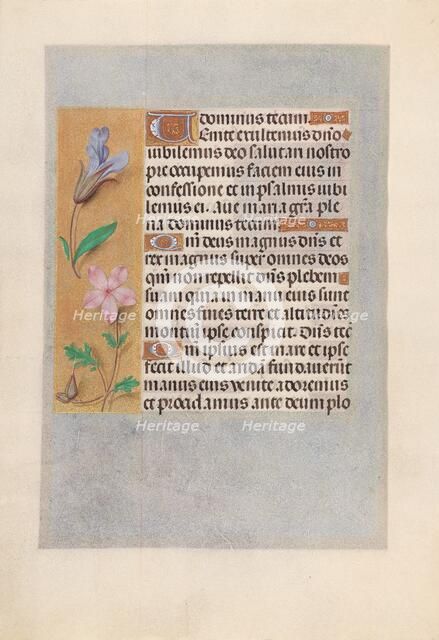 dominus tecum.
Venite exultemus dño
iubilemus deo salutari nostro
preoccupemus faciem eius in
confessione et in psalmis iubi
lemus ei. Aue maria grã ple
na dominus tecum.
Qm̃ deus magnus dñs et
rex magnus super omnes deos
qm̃ non repellit dñs plebem
suam quia in manu eius sunt
omnes fines terre et altitudines
montiũ ipse conspicit. Dñs tecũ.
Qm̃ ipsius est mare et ipse
fecit illud et aridã fundauerunt
manus eius venite adoremus
et procidamus ante deum plo
Heritage
Heritage
Heritage
Heritage
Heritage
Heritage